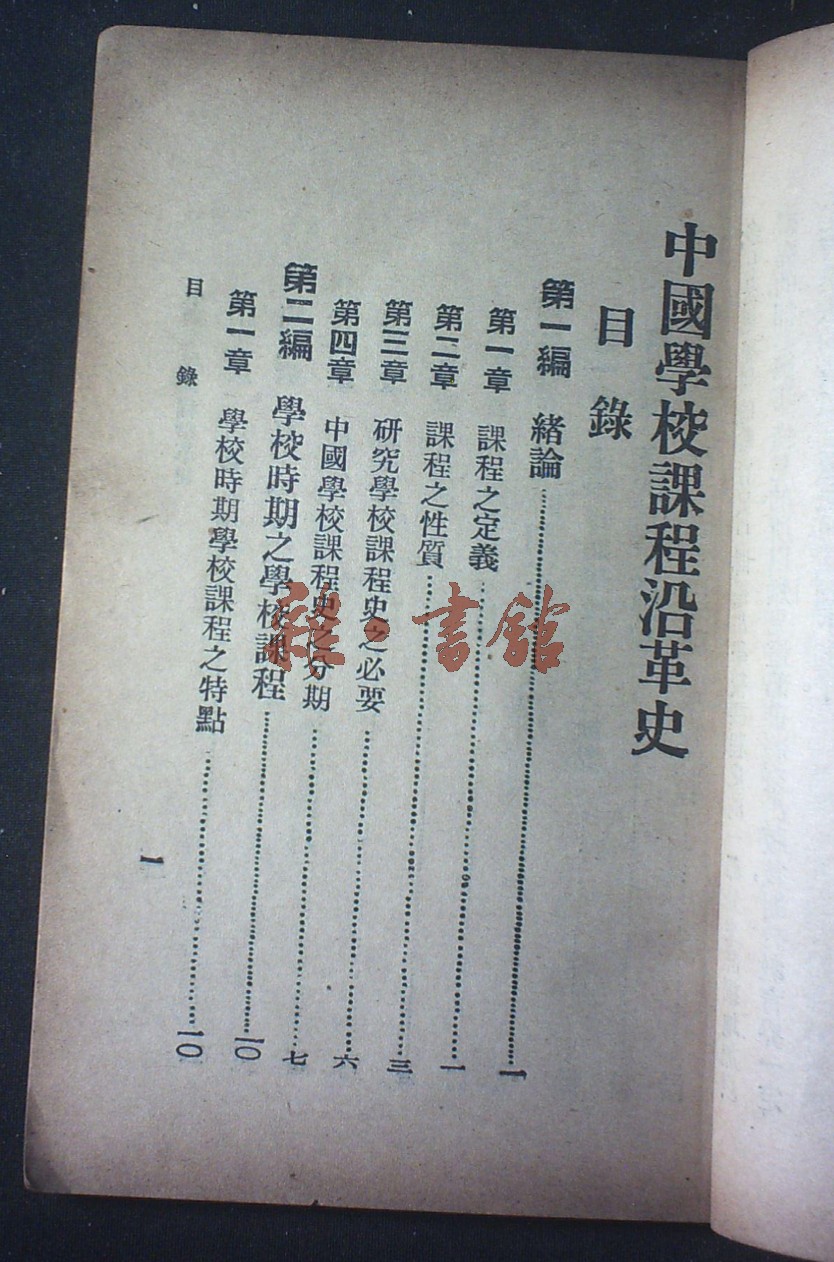 中國學校課程沿革史
目錄
第一編 緒論……一
第一章 課程之定義……一
第二章 課程之性質……三
第三章 研究學校課程史之必要……六
第四章 中國學校課程史之分期……七
第二編 學校時期之學校課程……一〇
第一章 學校時期學校課程之特點……一〇
目錄
一
書館